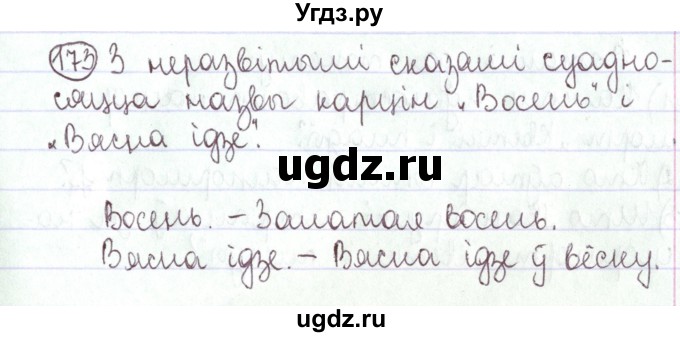 Угдз.ру
173 З неразвітымі сказамі суадно-
сяцца назвы карцін „Восень" і
„Вясна ідзе".
ugdz.ru
Восень. – Залатая восень.
Вясна ідзе. – Вясна ідзе ў вёску.
ugdz.ru